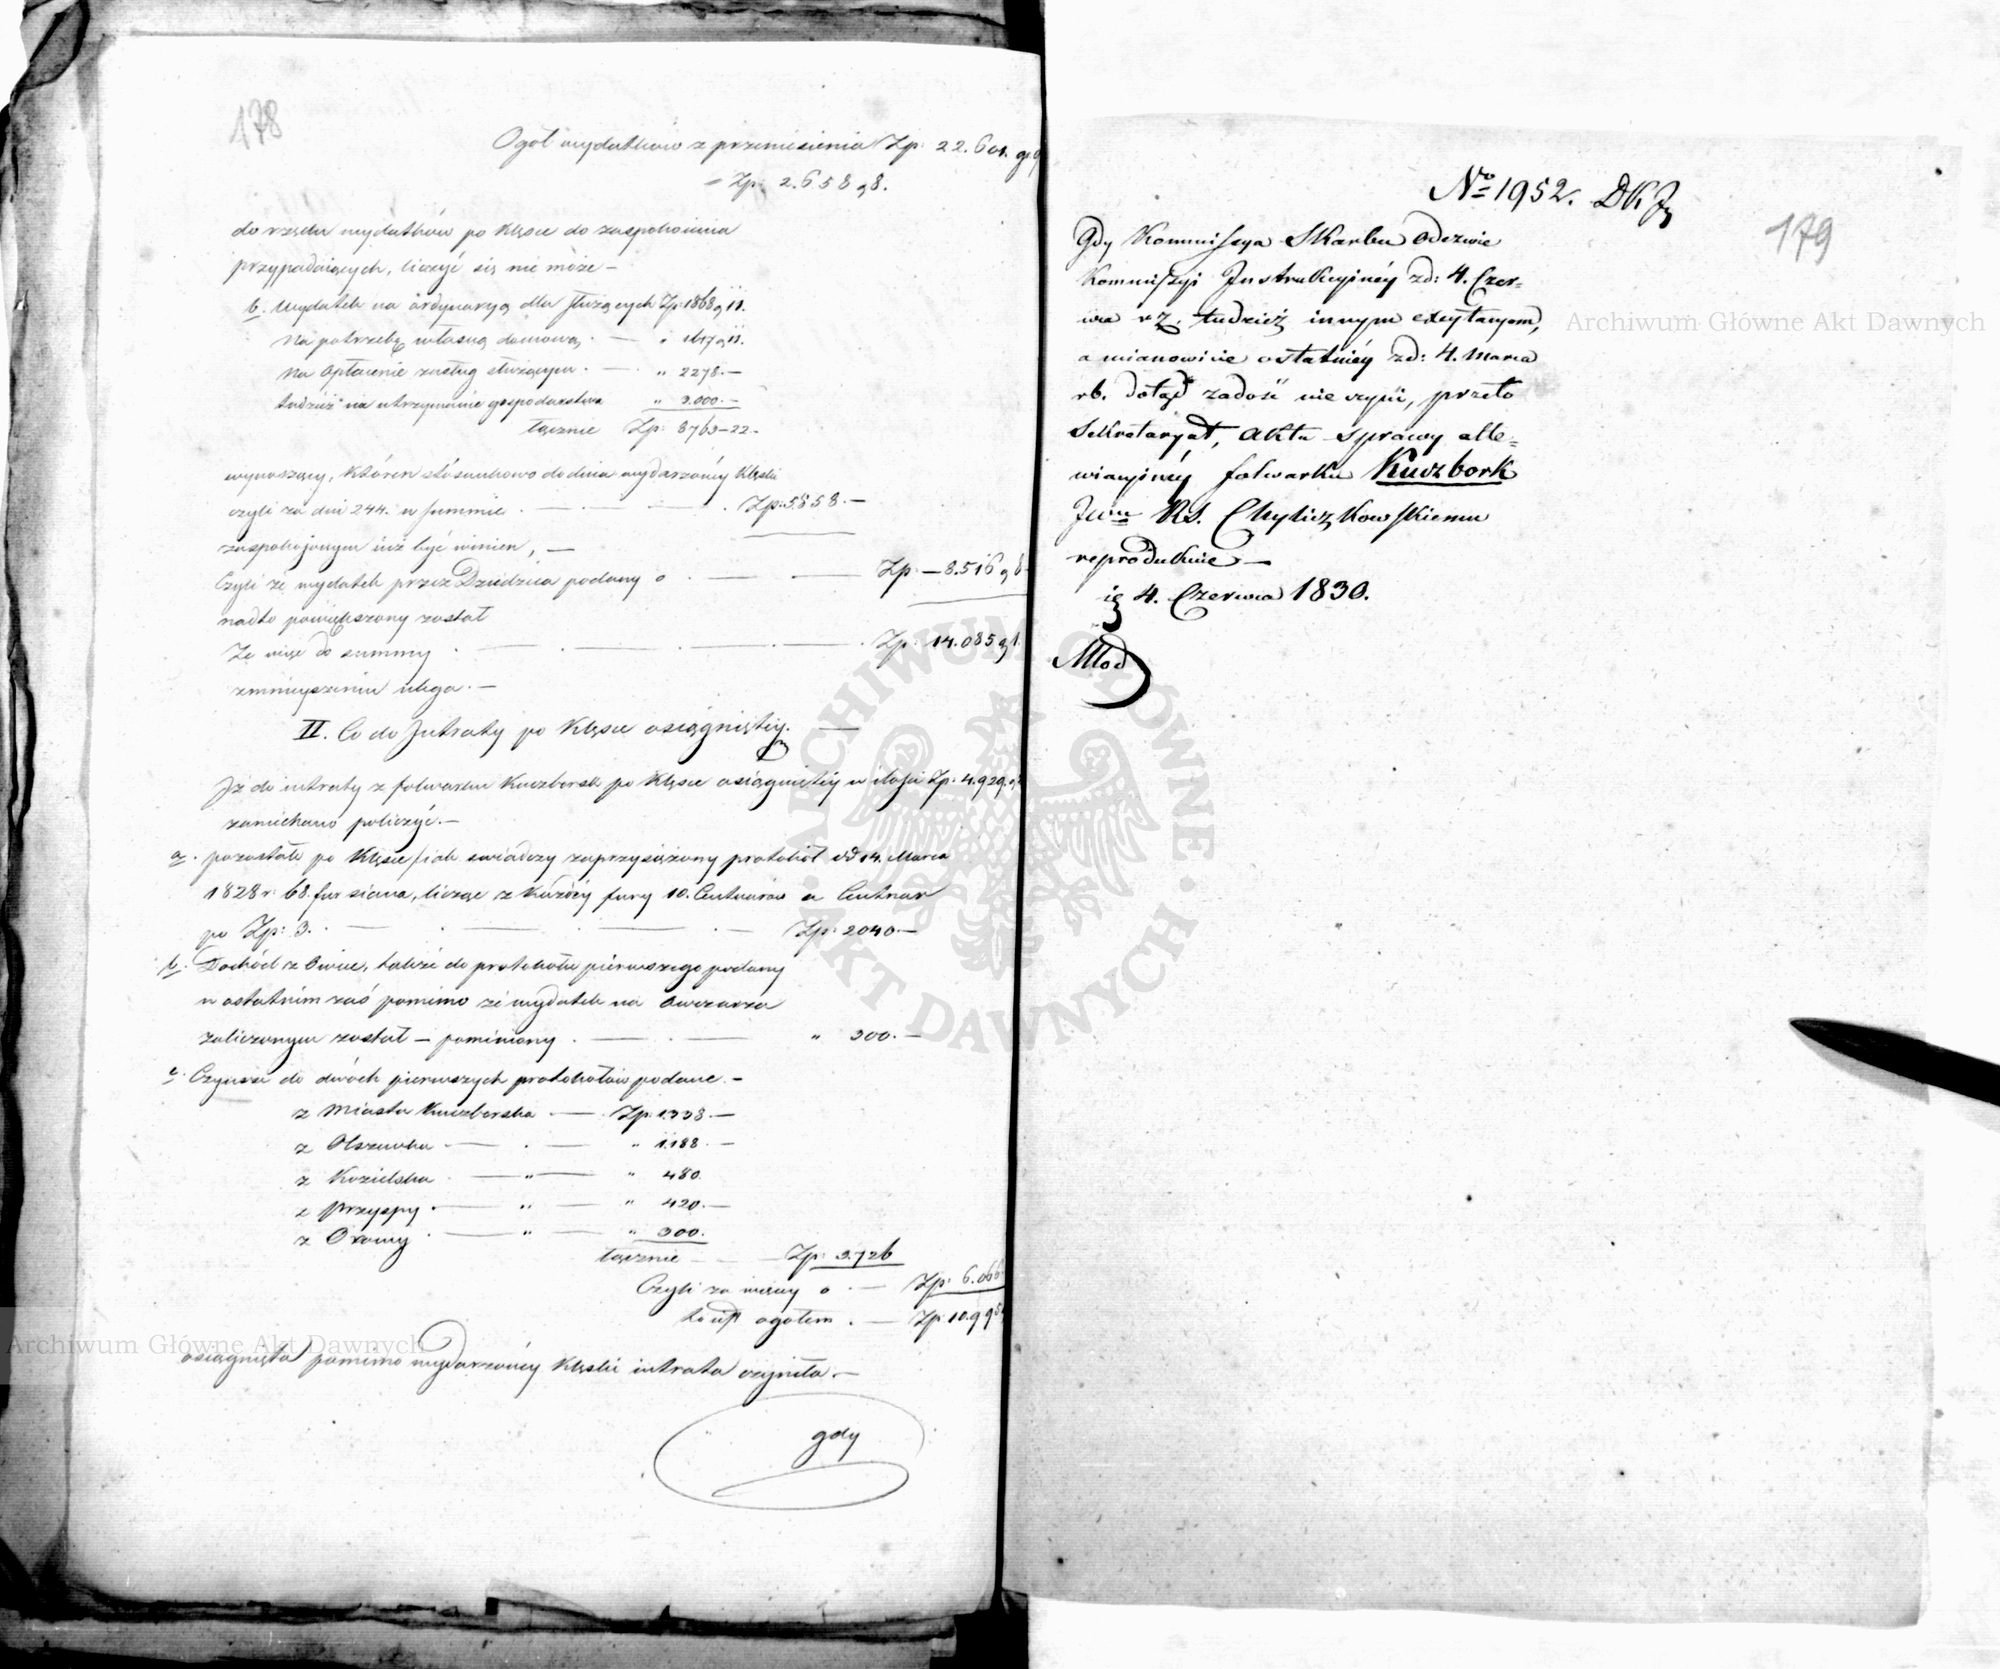 178
Ogół wydatków z przeniesienia Zp: 22.601. gr 9
– Zp: 2.658 g 8.
do rzędu wydatków po klęsce do zaspokoienia
przypadaiących, liczyć się nie może –
b. Wydatek na ordynaryą dla służących Zp: 1868 g 11.
na potrzebę własną domową . — " 1617 g 11.
na opłacenie zasług służącym . — " 2278. –
tudzież na utrzymanie gospodarstwa " 3.000. –
łącznie Zp: 8763 – 22 –
wynoszący, któren stósunkowo do dnia wydarzonéy klęski
czyli za dni 244. w summie . — . Zp: 5858. –
zaspokojonym iuż być winien, –
Czyli że wydatek przez Dziedzica podany o . — Zp – 8.516 g 6
nadto powiększony został
Że więc do summy . — . — . Zp: 14.085 g 1.
zmnieyszeniu ulega. –
II. Co do Intraty po klęsce osiągniętéy. —
Iż do intraty z folwarku Kuczbork po klęsce osiągniętéy w ilości Zp: 4.929.
zaniechano policzyć. –
a. pozostałe po klęsce jak świadczy zaprzysiężony protokół dd 14. Marca
1828 r: 68. fur siana, licząc z każdéy fury 10. Centnarów a Centnar
po Zp: 3. . — . — . — Zp: 2040 –
b. Dochód z Owiec, także do protokółu pierwszego podany
w ostatnim zaś pomimo że wydatek na Owczarza
zaliczonym został – pominiony . — . — " 300. –
c. Czynsze do dwóch pierwszych protokołów podane. –
z Miasta Kuczborka — . Zp. 1338. –
z Olszewka — . — " 1.188. –
z Kozielska . — " — " 480.
z Przyspy . — " — " 420. –
z Osowy . — " — " 300.
łącznie — Zp: 3.726
Czyli za mięny o . — Zp: 6.066
ogółem . — Zp 10.995
osiągnięta pomimo wydarzonéy klęski intrata czyniła. –
gdy
No 1952. DKJ
179
Gdy Kommissya Skarbu odezwie
Kommissyi Instrukcyinéy zd: 4. Czer=
wca rz, tudzież innym excytacyom,
a mianowicie ostatniéy zd: 4. Marca
rb. dotąd zadość nie czyni, przeto
Sekretaryat, akta sprawy alle=
wiacyinéy folwarku Kuczbork
JWu RS. Chyliczkowskiemu
reprodukuie –
4. Czerwca 1830.
Młod
Archiwum Główne Akt Dawnych
Archiwum Główne Akt Dawnych
ARCHIWUM GŁÓWNE · AKT DAWNYCH ·